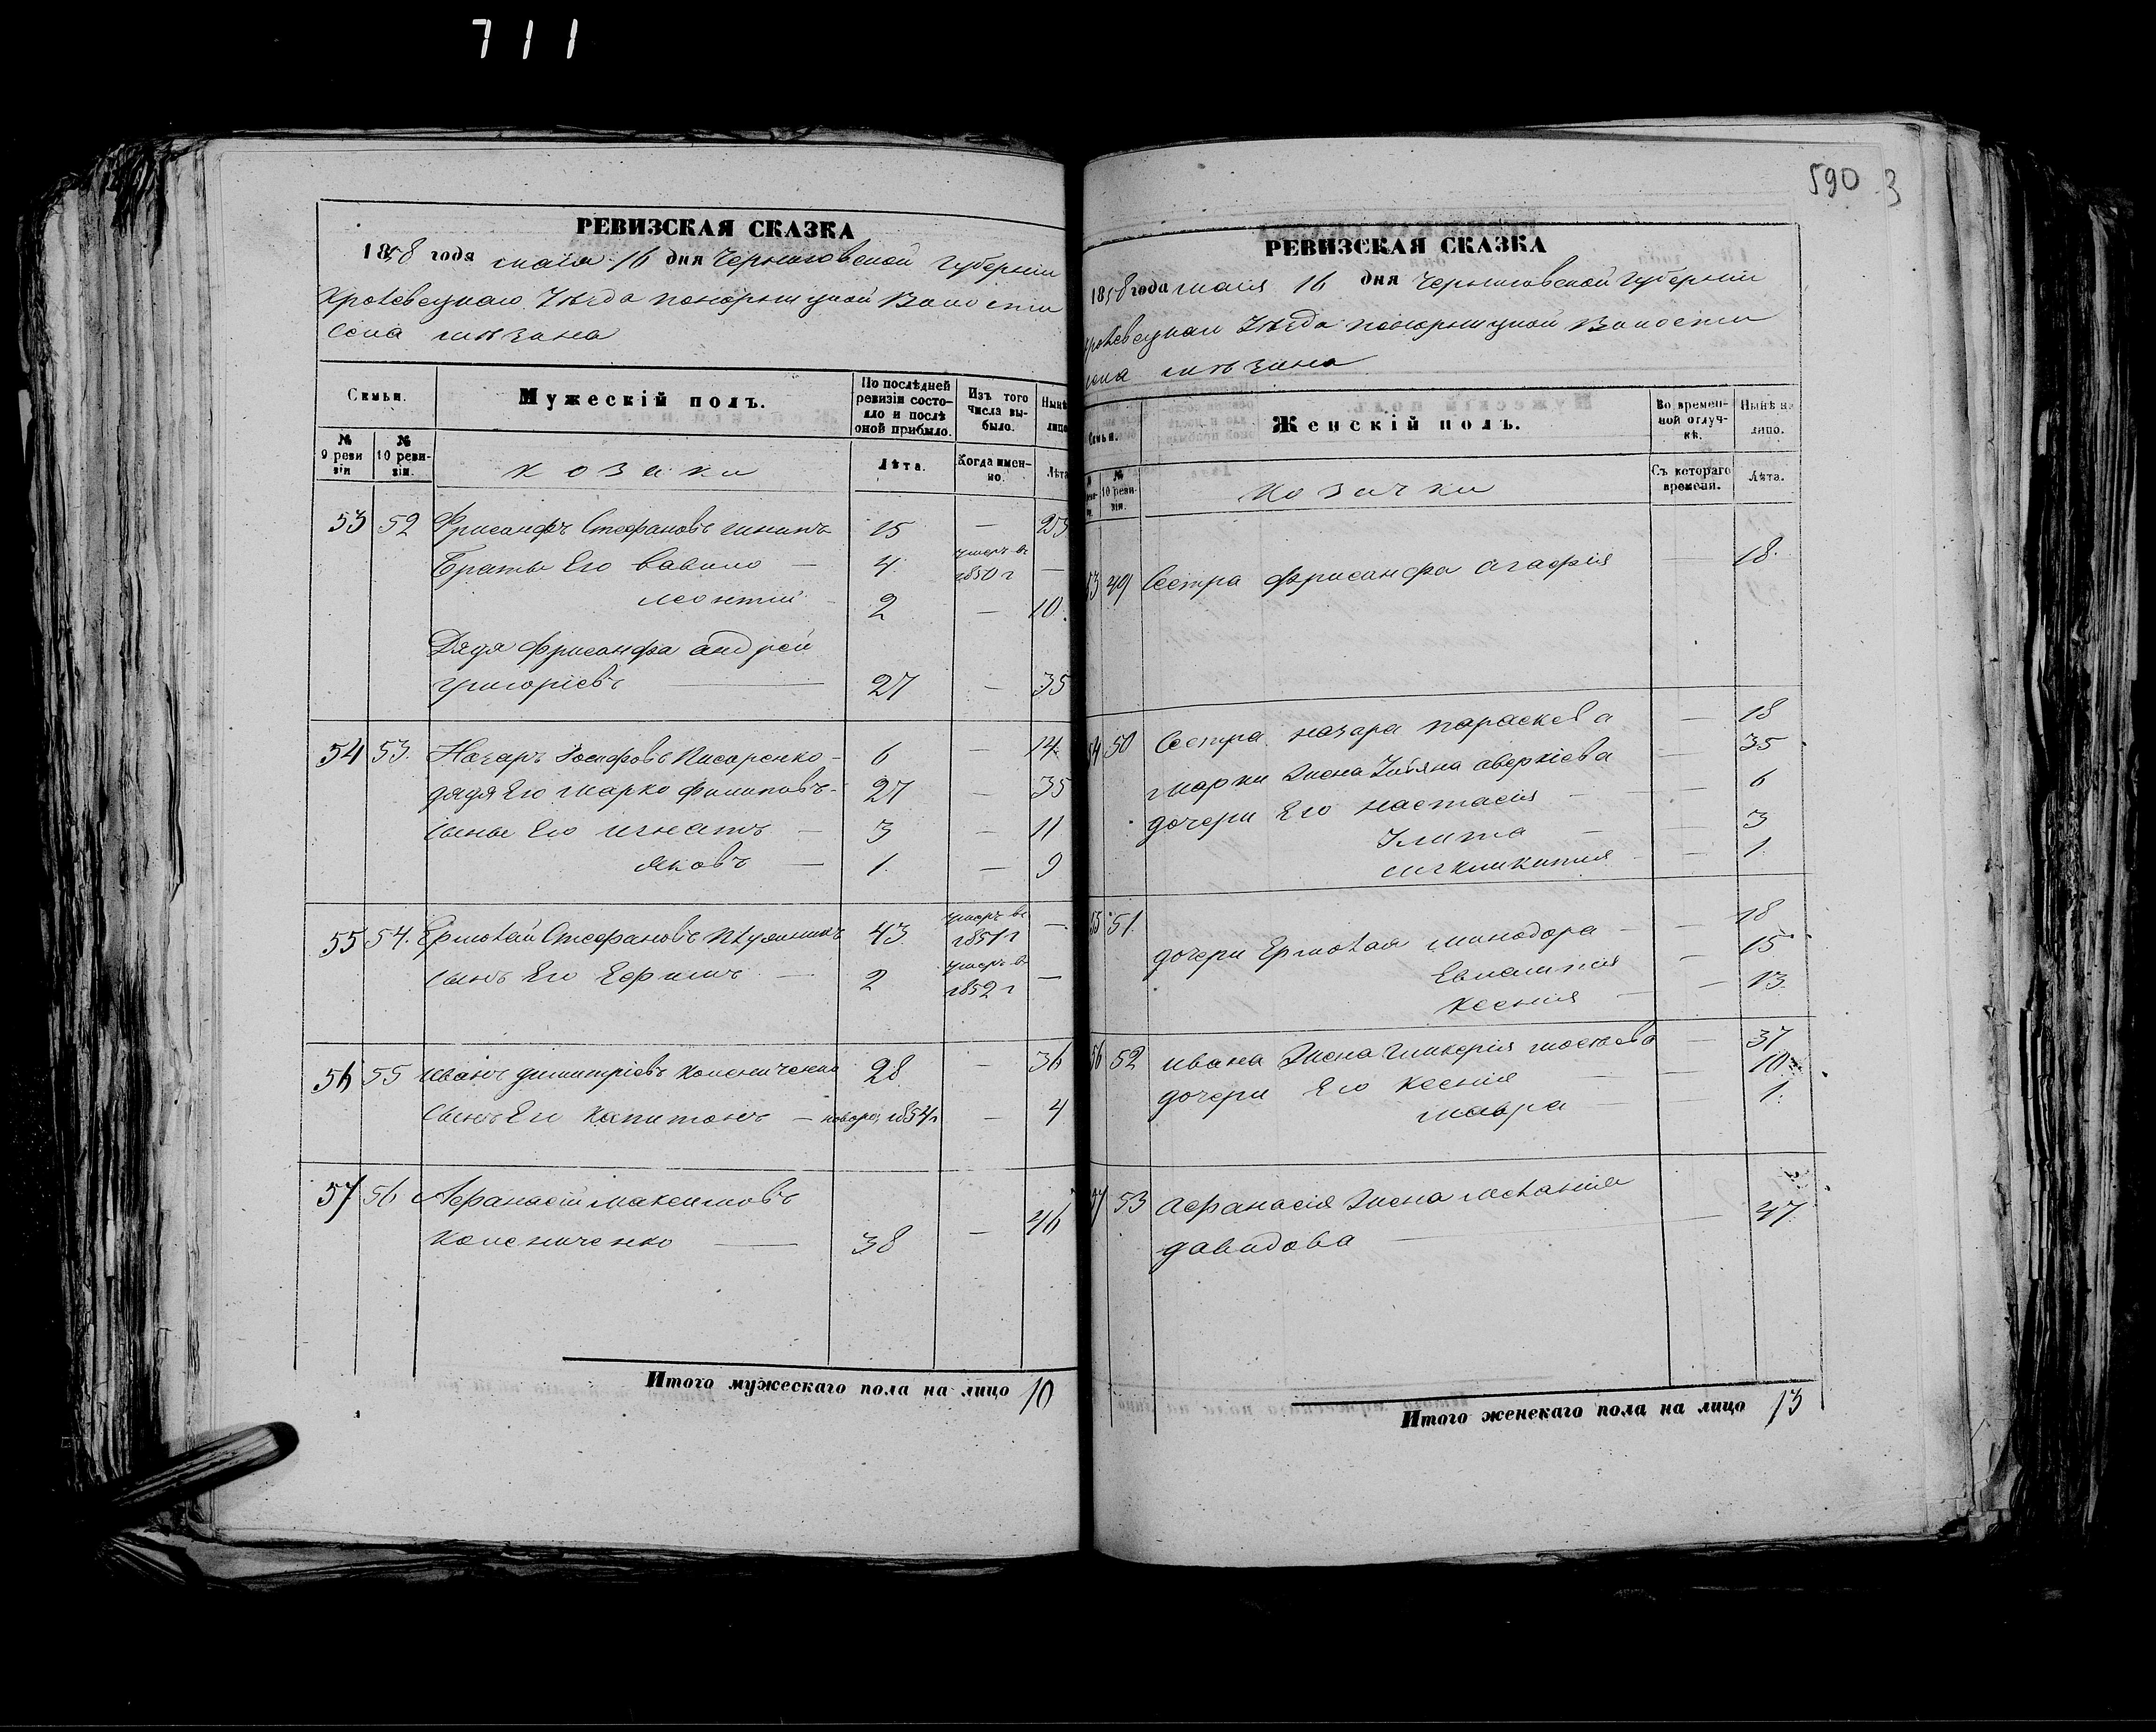 711
590 3
РЕВИЗСКАЯ СКАЗКА
1858 года маія 16 дня Черниговской Губерніи
Кролевецкаго Уезда Понорницкой Волости
Села
Семьи.
Мужескій полъ.
По послѣдней ревизіи состояло и послѣ оной прибыло.
Изъ того числа выбыло.
Нынѣ
№ 9 ревизіи
№ 10 ревизіи.
козаки
Лѣта.
Когда именно.
Лѣта
53 52 Фрисанфъ Стефановъ 15 — 23
Братья Его Вавило — 4 умеръ въ 1850 г —
Леонтій 2 — 10.
Дядя Фрисанфа Андрей
Григоріевъ — 27 — 35
54 53. Назаръ Іосифовъ Писаренко - 6 — 14
дядя Его Марко Филиповъ - 27 — 35
Сыны Его Игнатъ — 3 — 11
Яковъ — 1. — 9
55 54. Ермолай Стефановъ 43 умеръ въ 1851 г —
Сынъ Его Ефимъ — 2 умеръ въ 1852 г —
56 55 Иванъ Димитріевъ Колениченко 28 — 36
Сынъ Его Капитонъ — новорож 1854 г — 4
57 56 Афанасій Максимовъ
Колениченко — 38 — 46
Итого мужескаго пола на лицо 10
РЕВИЗСКАЯ СКАЗКА
1858 года маія 16 дня Черниговской Губерніи
Кролевецкаго Уезда Понорницкой Волости
Села
Семьи.
Женскій полъ.
Во временной отлучкѣ.
Нынѣ на лицо.
№ 10 ревизіи.
козачки
Съ котораго времени.
Лѣта.
53 49 Сестра Фрисанфа Агафія — 18.
54 50 Сестра Назара Параскева — 18
Марки Жена Ульяна Аверкіева — 35
дочери Его Настасія — 6
Улита — 3
— 1
55 51.
дочери Ермолая Минодора — 18
Евлампія — 15
Ксенія — 13
56 52 Ивана Жена Гликерія — 37
дочери Его Ксенія — 10
Мавра — 1.
57 53 Афанасія Жена Меланія
Давидова — 47
Итого женскаго пола на лицо 13